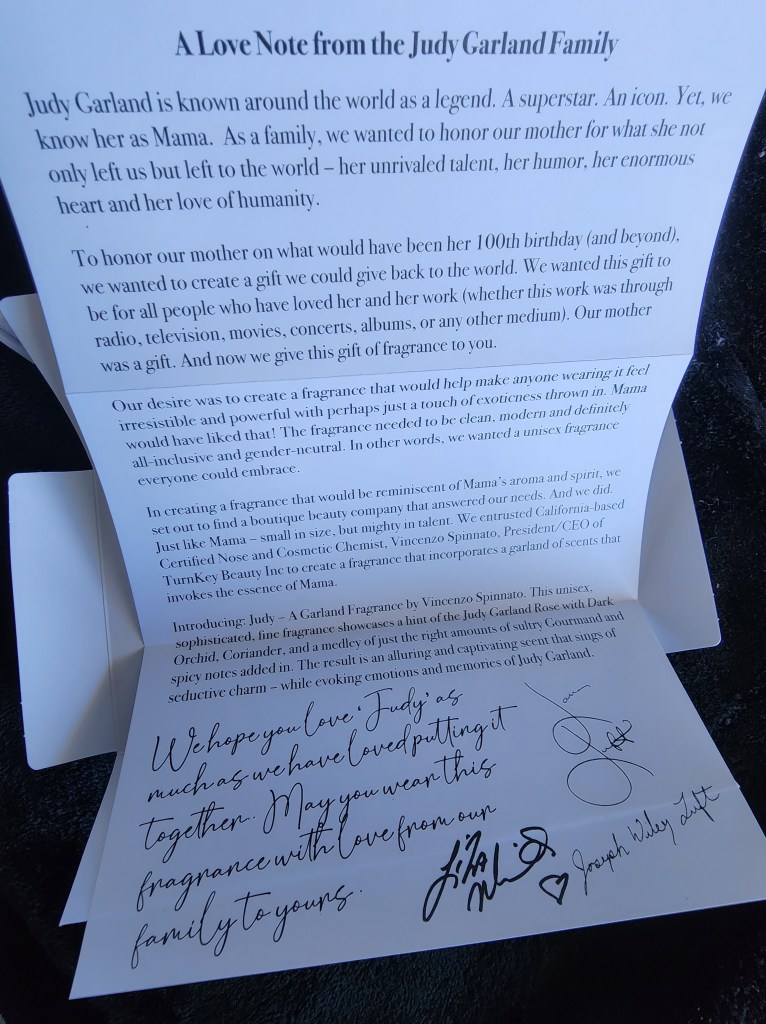 A Love Note from the Judy Garland Family
Judy Garland is known around the world as a legend. A superstar. An icon. Yet, we
know her as Mama. As a family, we wanted to honor our mother for what she not
only left us but left to the world – her unrivaled talent, her humor, her enormous
heart and her love of humanity.
To honor our mother on what would have been her 100th birthday (and beyond),
we wanted to create a gift we could give back to the world. We wanted this gift to
be for all people who have loved her and her work (whether this work was through
radio, television, movies, concerts, albums, or any other medium). Our mother
was a gift. And now we give this gift of fragrance to you.
Our desire was to create a fragrance that would help make anyone wearing it feel
irresistible and powerful with perhaps just a touch of exoticness thrown in. Mama
would have liked that! The fragrance needed to be clean, modern and definitely
all-inclusive and gender-neutral. In other words, we wanted a unisex fragrance
everyone could embrace.
In creating a fragrance that would be reminiscent of Mama's aroma and spirit, we
set out to find a boutique beauty company that answered our needs. And we did.
Just like Mama – small in size, but mighty in talent. We entrusted California-based
Certified Nose and Cosmetic Chemist, Vincenzo Spinnato, President/CEO of
TurnKey Beauty Inc to create a fragrance that incorporates a garland of scents that
invokes the essence of Mama.
Introducing: Judy – A Garland Fragrance by Vincenzo Spinnato. This unisex,
sophisticated, fine fragrance showcases a hint of the Judy Garland Rose with Dark
Orchid, Coriander, and a medley of just the right amounts of sultry Gourmand and
spicy notes added in. The result is an alluring and captivating scent that sings of
seductive charm – while evoking emotions and memories of Judy Garland.
We hope you love 'Judy' as
much as we have loved putting it
together. May you wear this
fragrance with love from our
family to yours.
Lorna
Luft
Liza
Minnelli
Joseph Wiley Luft